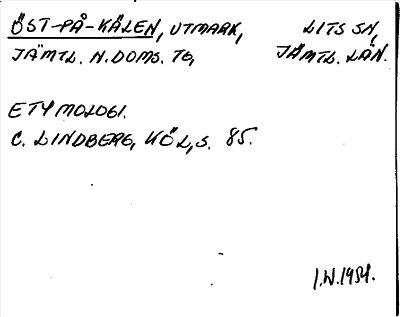 ÖST-PÅ-KÅLEN, UTMARK, LITS SN,
JÄMTL. N. DOMS. TG, JÄMTL. LÄN.
ETYMOLOGI.
C. LINDBERG, KÖL, S. 85.
I.W. 1954.